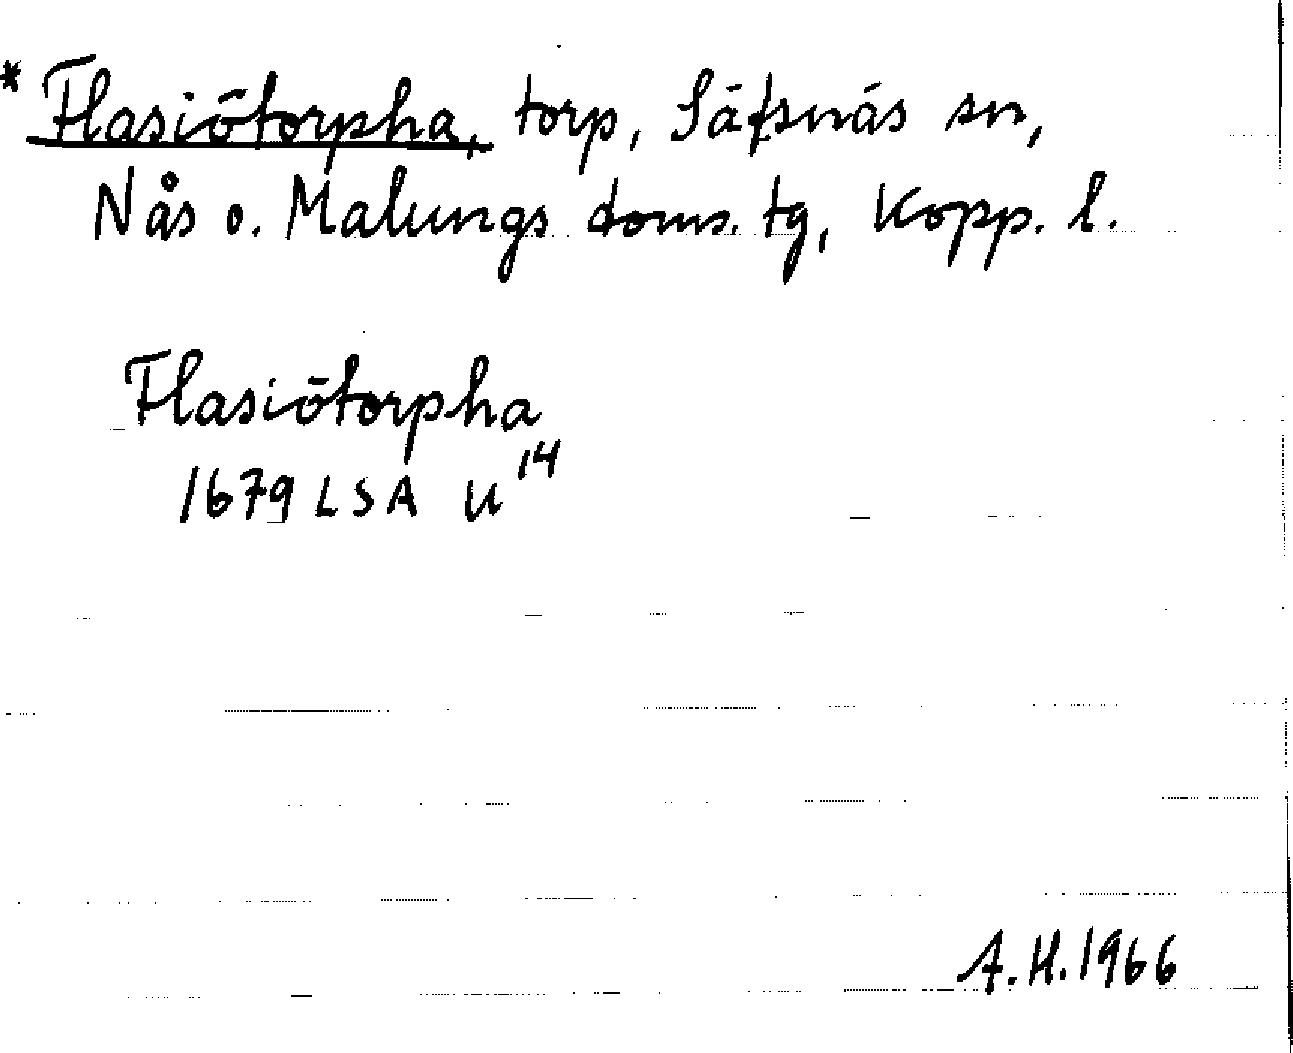 * Flasiötorpha, torp, Säfsnäs sn,
Nås o. Malungs doms. tg, Kopp. l.
Flasiötorpha
1679 LSA U 14
A.H. 1966